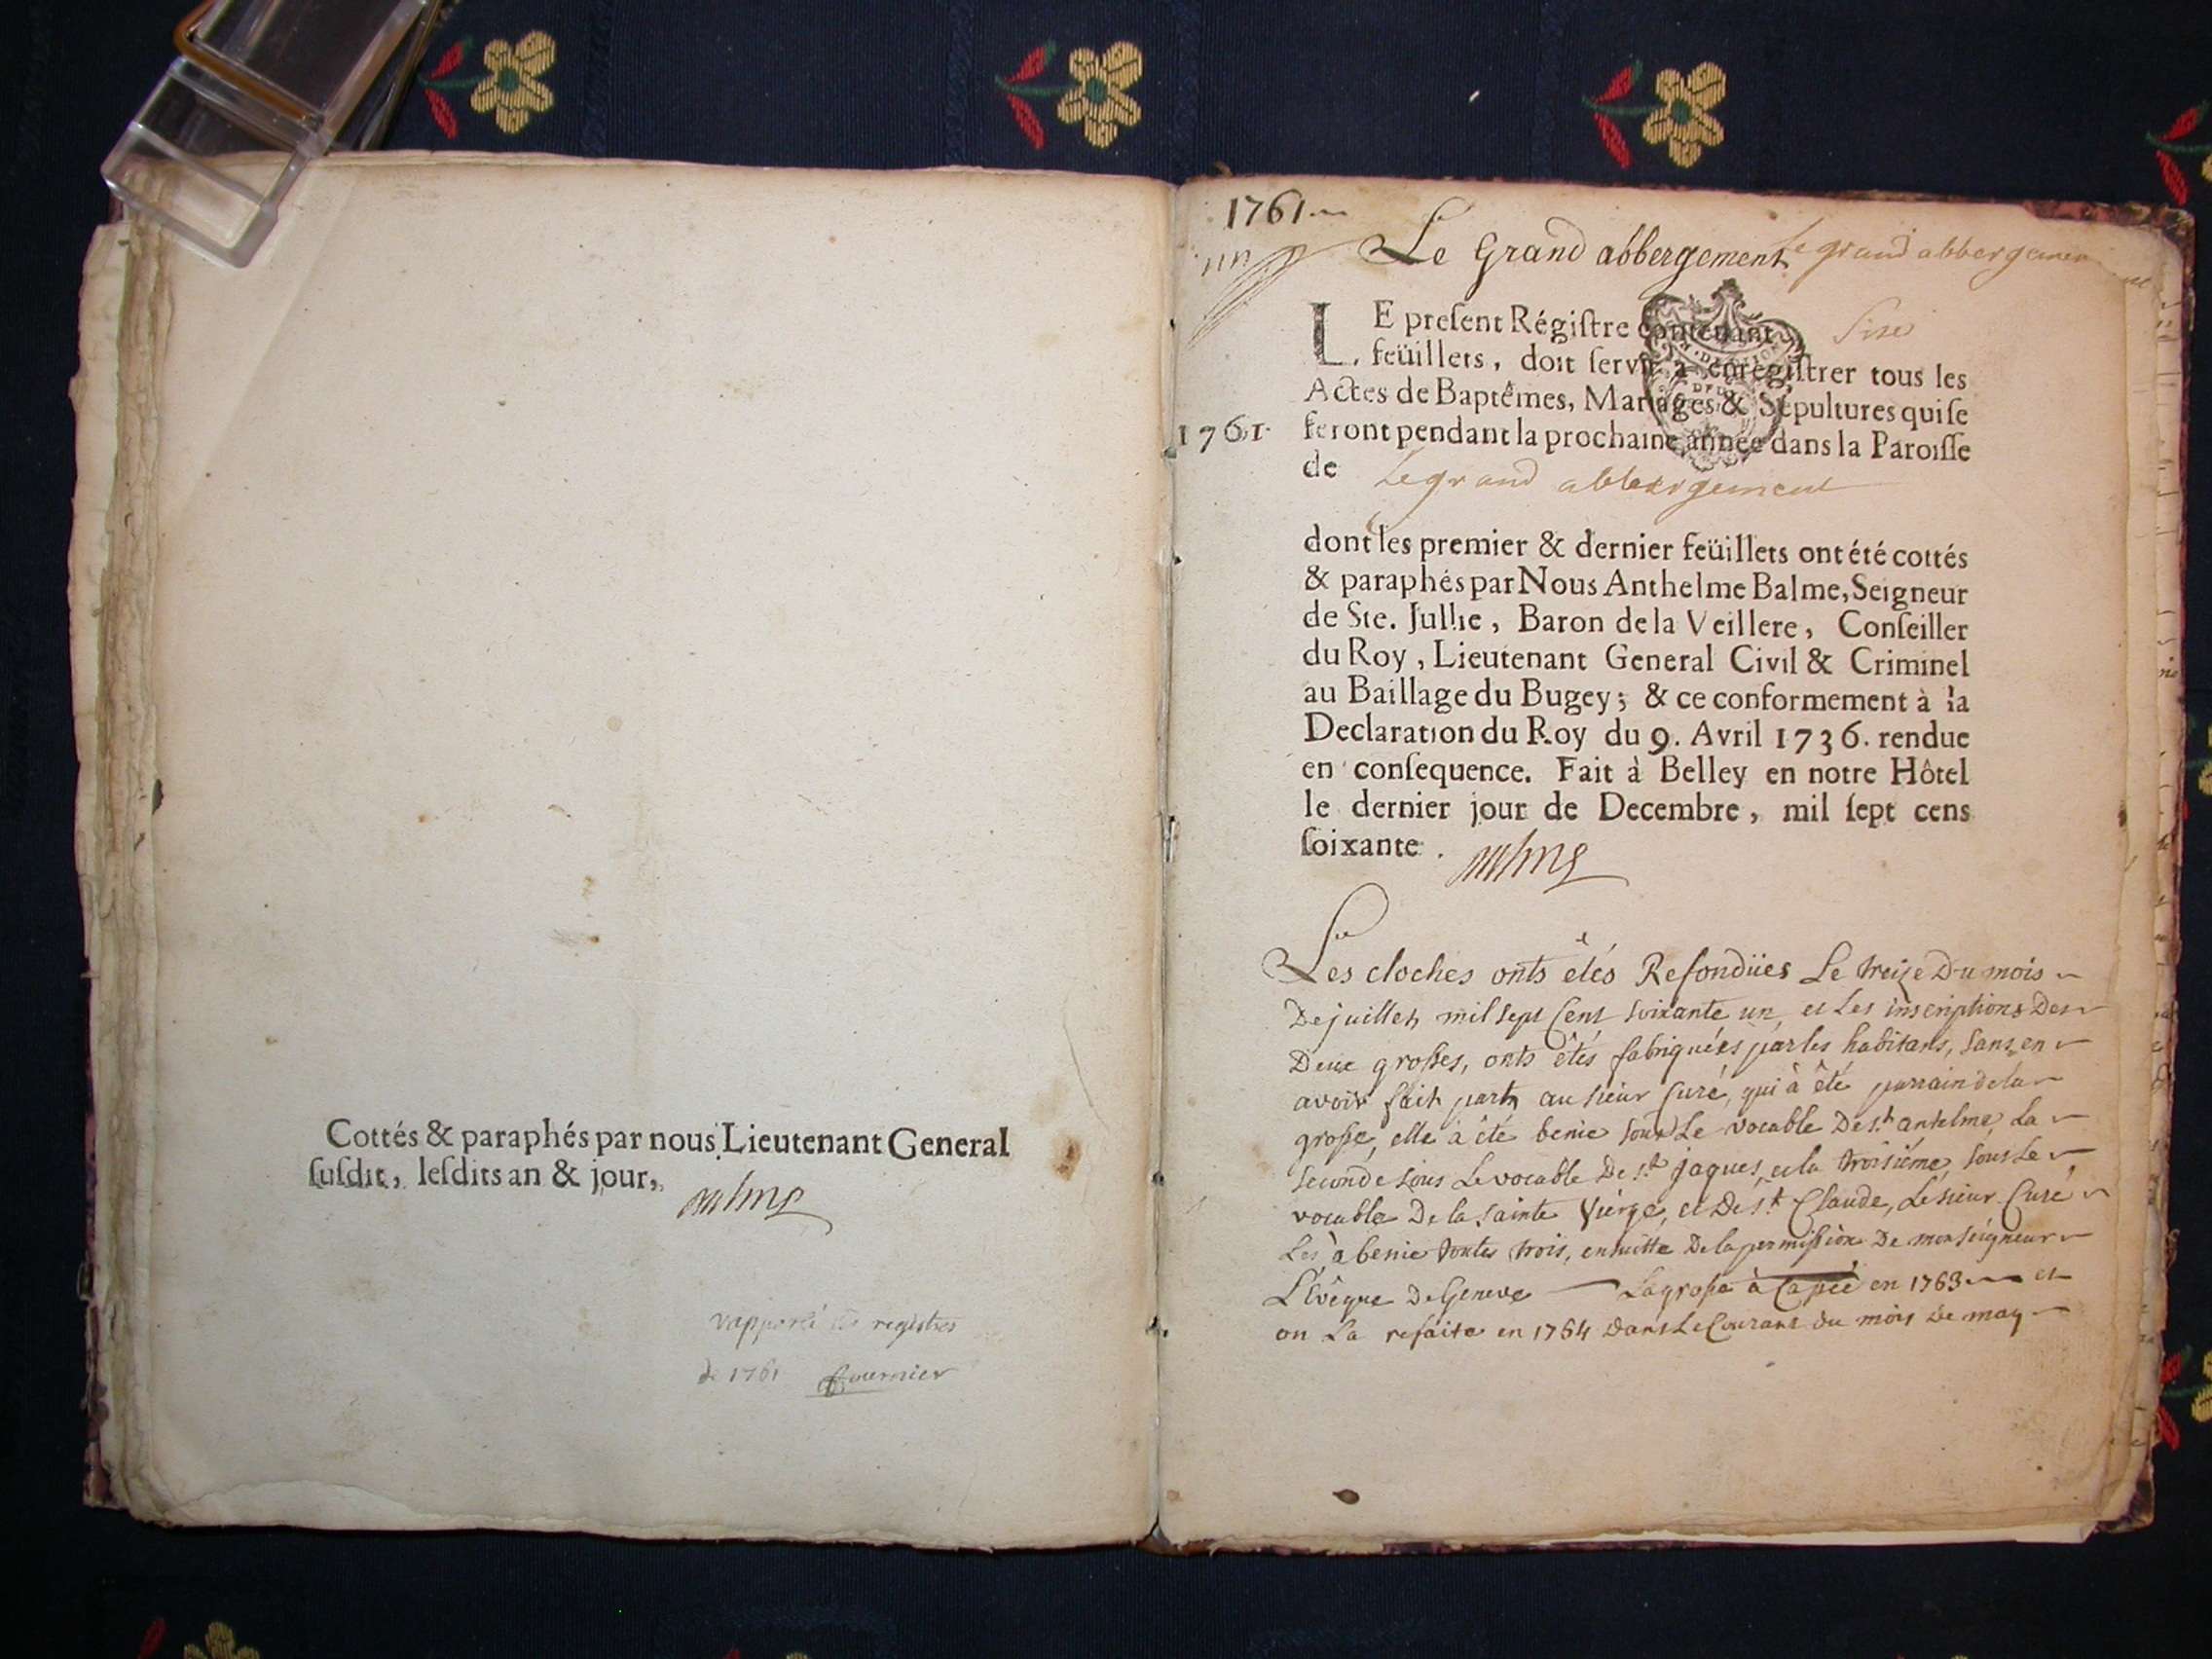 Cottés & paraphés par nous Lieutenant General
ſuſdit, leſdits an & jour,
rapporté registres
de 1761 Fournier
1761
Le Grand abbergement Le grand abbergement
LE preſent Régiſtre contenant ſise
feüillets, doit ſervir à enregiſtrer tous les
Actes de Baptêmes, Mariages & Sepultures qui ſe
1761. feront pendant la prochaine année dans la Paroiſſe
de Le grand abbergement
dont les premier & dernier feüillets ont été cottés
& paraphés par Nous Anthelme Balme, Seigneur
de Ste. Jullie, Baron de la Veillere, Conſeiller
du Roy, Lieutenant General Civil & Criminel
au Baillage du Bugey; & ce conformement à la
Declaration du Roy du 9. Avril 1736. rendue
en conſequence. Fait à Belley en notre Hôtel
le dernier jour de Decembre, mil ſept cens
ſoixante.
Les cloches onts êtés Refondües Le treize Du mois
De juillet mil sept Cent soixante un, et Les inscriptions Des
Deux grosses, onts êtés fabriquées par les habitants, sans en
avoir fait part au sieur Curé, qui à êté parrain de la
grosse, elle à êté benie sous Le vocable De st. antelme, La
seconde sous Le vocable De st. jaques, et la troisiéme, sous Le
vocable De la sainte Viérge, et De st. Claude, Le sieur Curé
Les à benie toutes trois, ensuitte De la permission De monseigneur
L'Evêque De Geneve — La grosse à Cassée en 1763 et
on La refaite en 1764 Dans Le Courant du mois de may